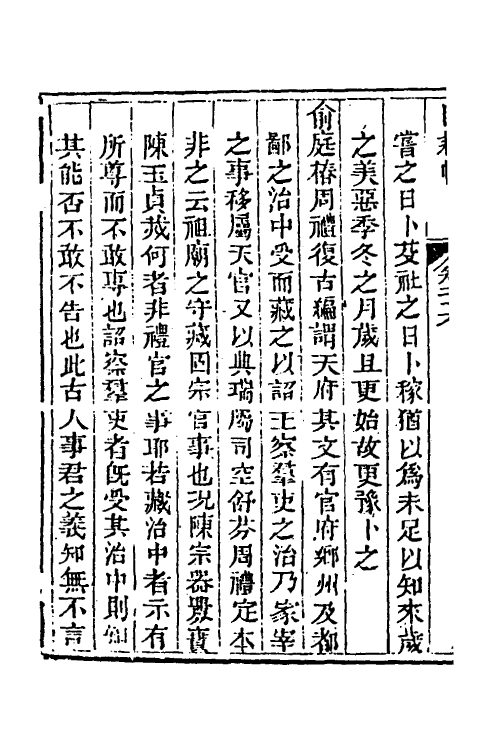 卷二十六
嘗之日卜芟社之日卜稼猶以爲未足以知來歲
之美惡季冬之月歲且更始故更豫卜之
俞庭椿周禮復古編謂天府其文有官府鄉州及都
鄙之治中受而藏之以詔王察羣吏之治乃冢宰
之事移屬天官又以典瑞屬司空舒芬周禮定本
非之云祖廟之守藏固宗官事也況陳宗器釁寶
陳玉貞烖何者非禮官之事耶若藏治中者示有
所尊而不敢專也詔察羣吏者旣受其治中則知
其能否不敢不告也此古人事君之義知無不言